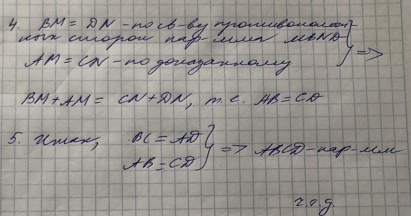 4. BM = DN - по св-ву противополож-
ных сторон пар-мма MBND
AM = CN - по доказанному } =>
BM + AM = CN + DN, т.е. AB = CD
5. Итак, BC = AD
AB = CD } => ABCD - пар-мм
ч.т.д.